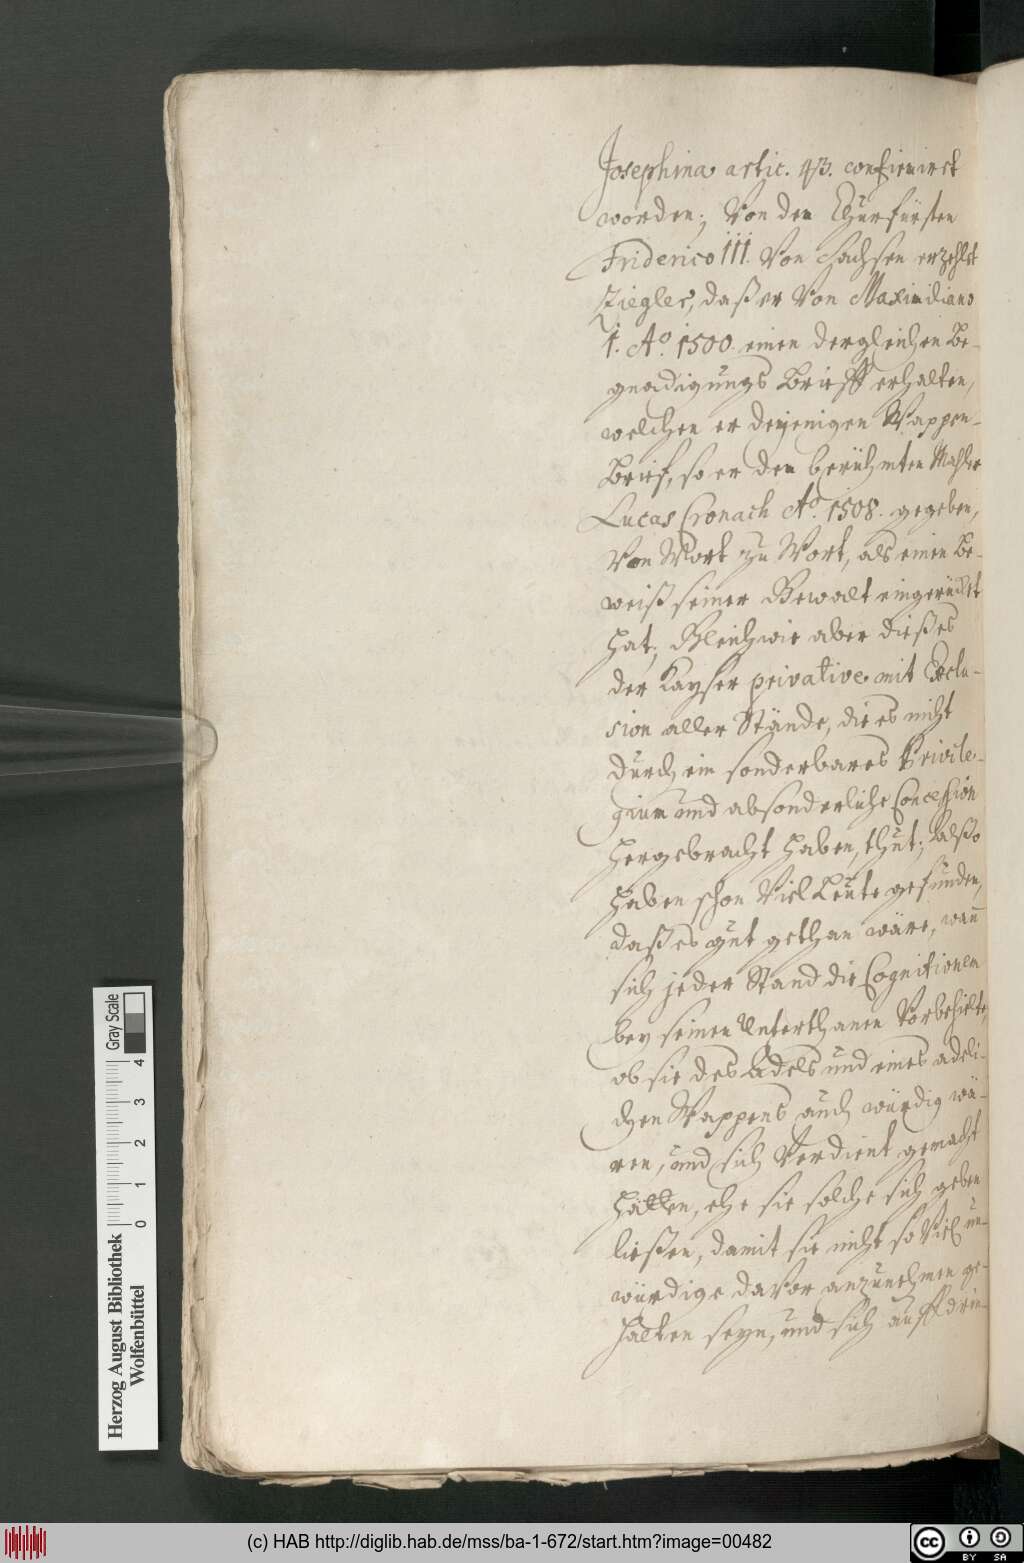 Josephina artic. 43. confirmirct
worden; Von den Churfürsten
Friderico III. Von Sachsen erzehlet
Ziegler, daß er Von Maximiliano
1. Aº. 1500. einen dergleichen Be-
gnadigungs Brieff erhalten,
welchen er denjenigen Wappen-
Brief, so er den berühmten Mahler
Lucas Cronach Aº. 1508. gegeben,
Von Wort zu Wort, als einen Be-
weiß seiner Gewalt eingerücket
hat; Gleichwie aber dießes
der Kayser privative mit Exclu-
sion aller Stände, die es nicht
durch ein sonderbares Privile-
gium und absonderliche Concession
hergebracht haben, thut; alßo
haben schon Viel Leute gefunden,
daß es gut gethan wäre, wann
sich jeder Stand die Cognitionem
bey seinen Unterthanen Vorbehielte,
ob sie des Adels und eines adeli-
chen Wappens auch würdig wä-
ren, und sich Verdient gemacht
hätten, ehe sie solche sich geben
ließen, damit sie nicht so Viel un-
würdige davor anzunehmen ge-
halten seyn, und sich auffdrin-
Herzog August Bibliothek
Wolfenbüttel
0 1 2 3 4
Gray Scale
(c) HAB http://diglib.hab.de/mss/ba-1-672/start.htm?image=00482
cc BY SA